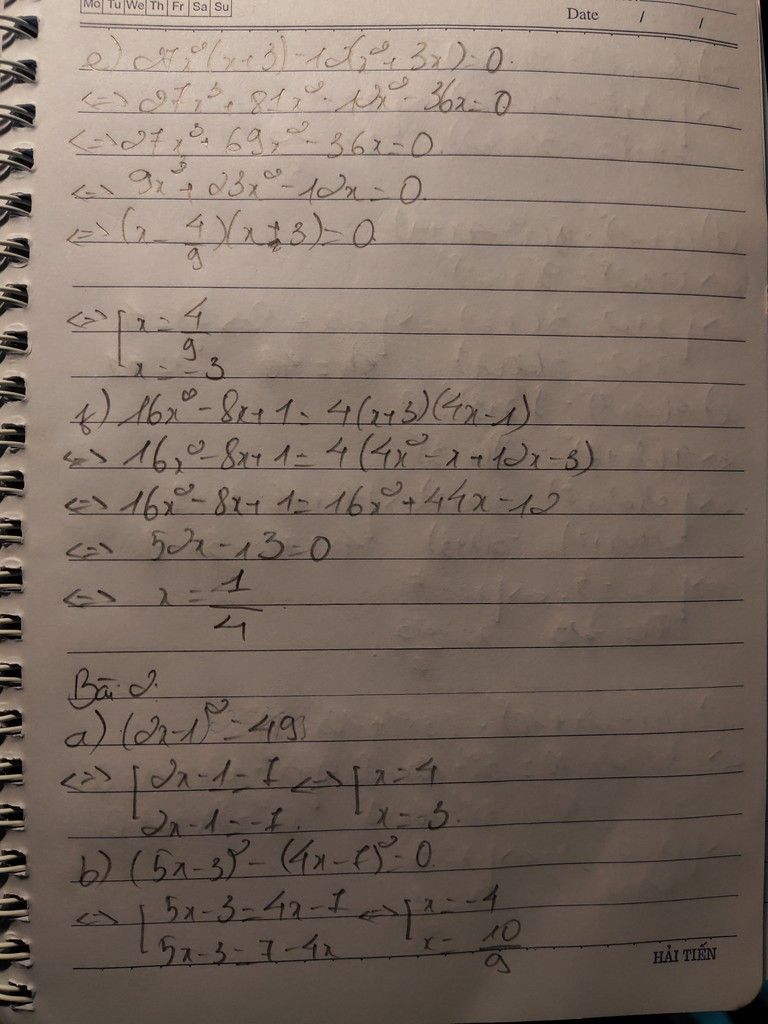 Mo Tu We Th Fr Sa Su
Date / /
e) 27x²(x+3) - 12(x²+3x)=0.
<=> 27x³ + 81x² - 12x² - 36x = 0
<=> 27x³ + 69x² - 36x = 0
<=> 9x³ + 23x² - 12x = 0.
<=> (x - 4/9)(x+3) = 0.
<=> [ x = 4/9
x = -3
f) 16x² - 8x + 1 = 4(x+3)(4x-1)
<=> 16x² - 8x + 1 = 4(4x² - x + 12x - 3)
<=> 16x² - 8x + 1 = 16x² + 44x - 12
<=> 52x - 13 = 0
<=> x = 1/4
Bài 2.
a) (2x-1)² = 49
<=> [ 2x-1=7 <=> [ x=4
2x-1=-7. x=-3.
b) (5x-3)² - (4x-7)² = 0
<=> [ 5x-3=4x-7 <=> [ x=-4
5x-3=7-4x x = 10/9
HẢI TIẾN